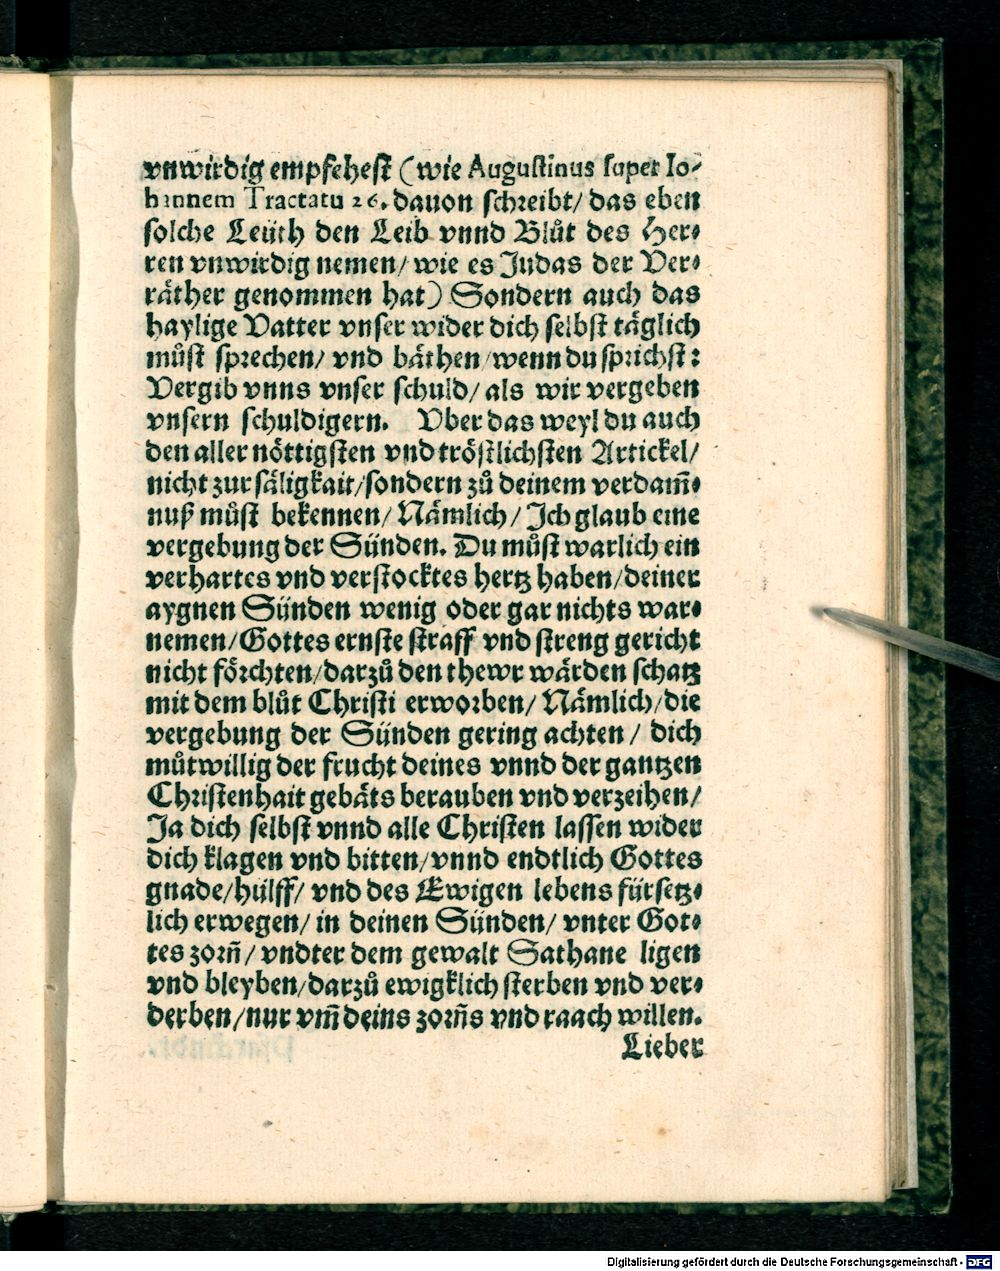 vnwirdig empfehest (wie Augustinus super Io-
hannem Tractatu 26. dauon schreibt/ das eben
solche Leüth den Leib vnnd Blůt des Her-
ren vnwirdig nemen/ wie es Judas der Ver-
räther genommen hat) Sondern auch das
haylige Vatter vnser wider dich selbst täglich
můst sprechen/ vnd bäthen/ wenn du sprichst:
Vergib vnns vnser schuld/ als wir vergeben
vnsern schuldigern. Vber das weyl du auch
den aller nöttigsten vnd tröstlichsten Artickel/
nicht zur säligkait/ sondern zů deinem verdam̃-
nuß můst bekennen/ Nämlich/ Ich glaub eine
vergebung der Sünden. Du můst warlich ein
verhartes vnd verstocktes hertz haben/ deiner
aygnen Sünden wenig oder gar nichts war-
nemen/ Gottes ernste straff vnd streng gericht
nicht förchten/ darzů den thewr wärden schatz
mit dem blůt Christi erworben/ Nämlich/ die
vergebung der Sünden gering achten/ dich
můtwillig der frucht deines vnnd der gantzen
Christenhait gebäts berauben vnd verzeihen/
Ja dich selbst vnnd alle Christen lassen wider
dich klagen vnd bitten/ vnnd endtlich Gottes
gnade/ hülff/ vnd des Ewigen lebens fürsetz-
lich erwegen/ in deinen Sünden/ vnter Got-
tes zorñ/ vndter dem gewalt Sathane ligen
vnd bleyben/ darzů ewigklich sterben vnd ver-
derben/ nur vm̃ deins zorñs vnd raach willen.
Lieber
Digitalisierung gefördert durch die Deutsche Forschungsgemeinschaft - DFG